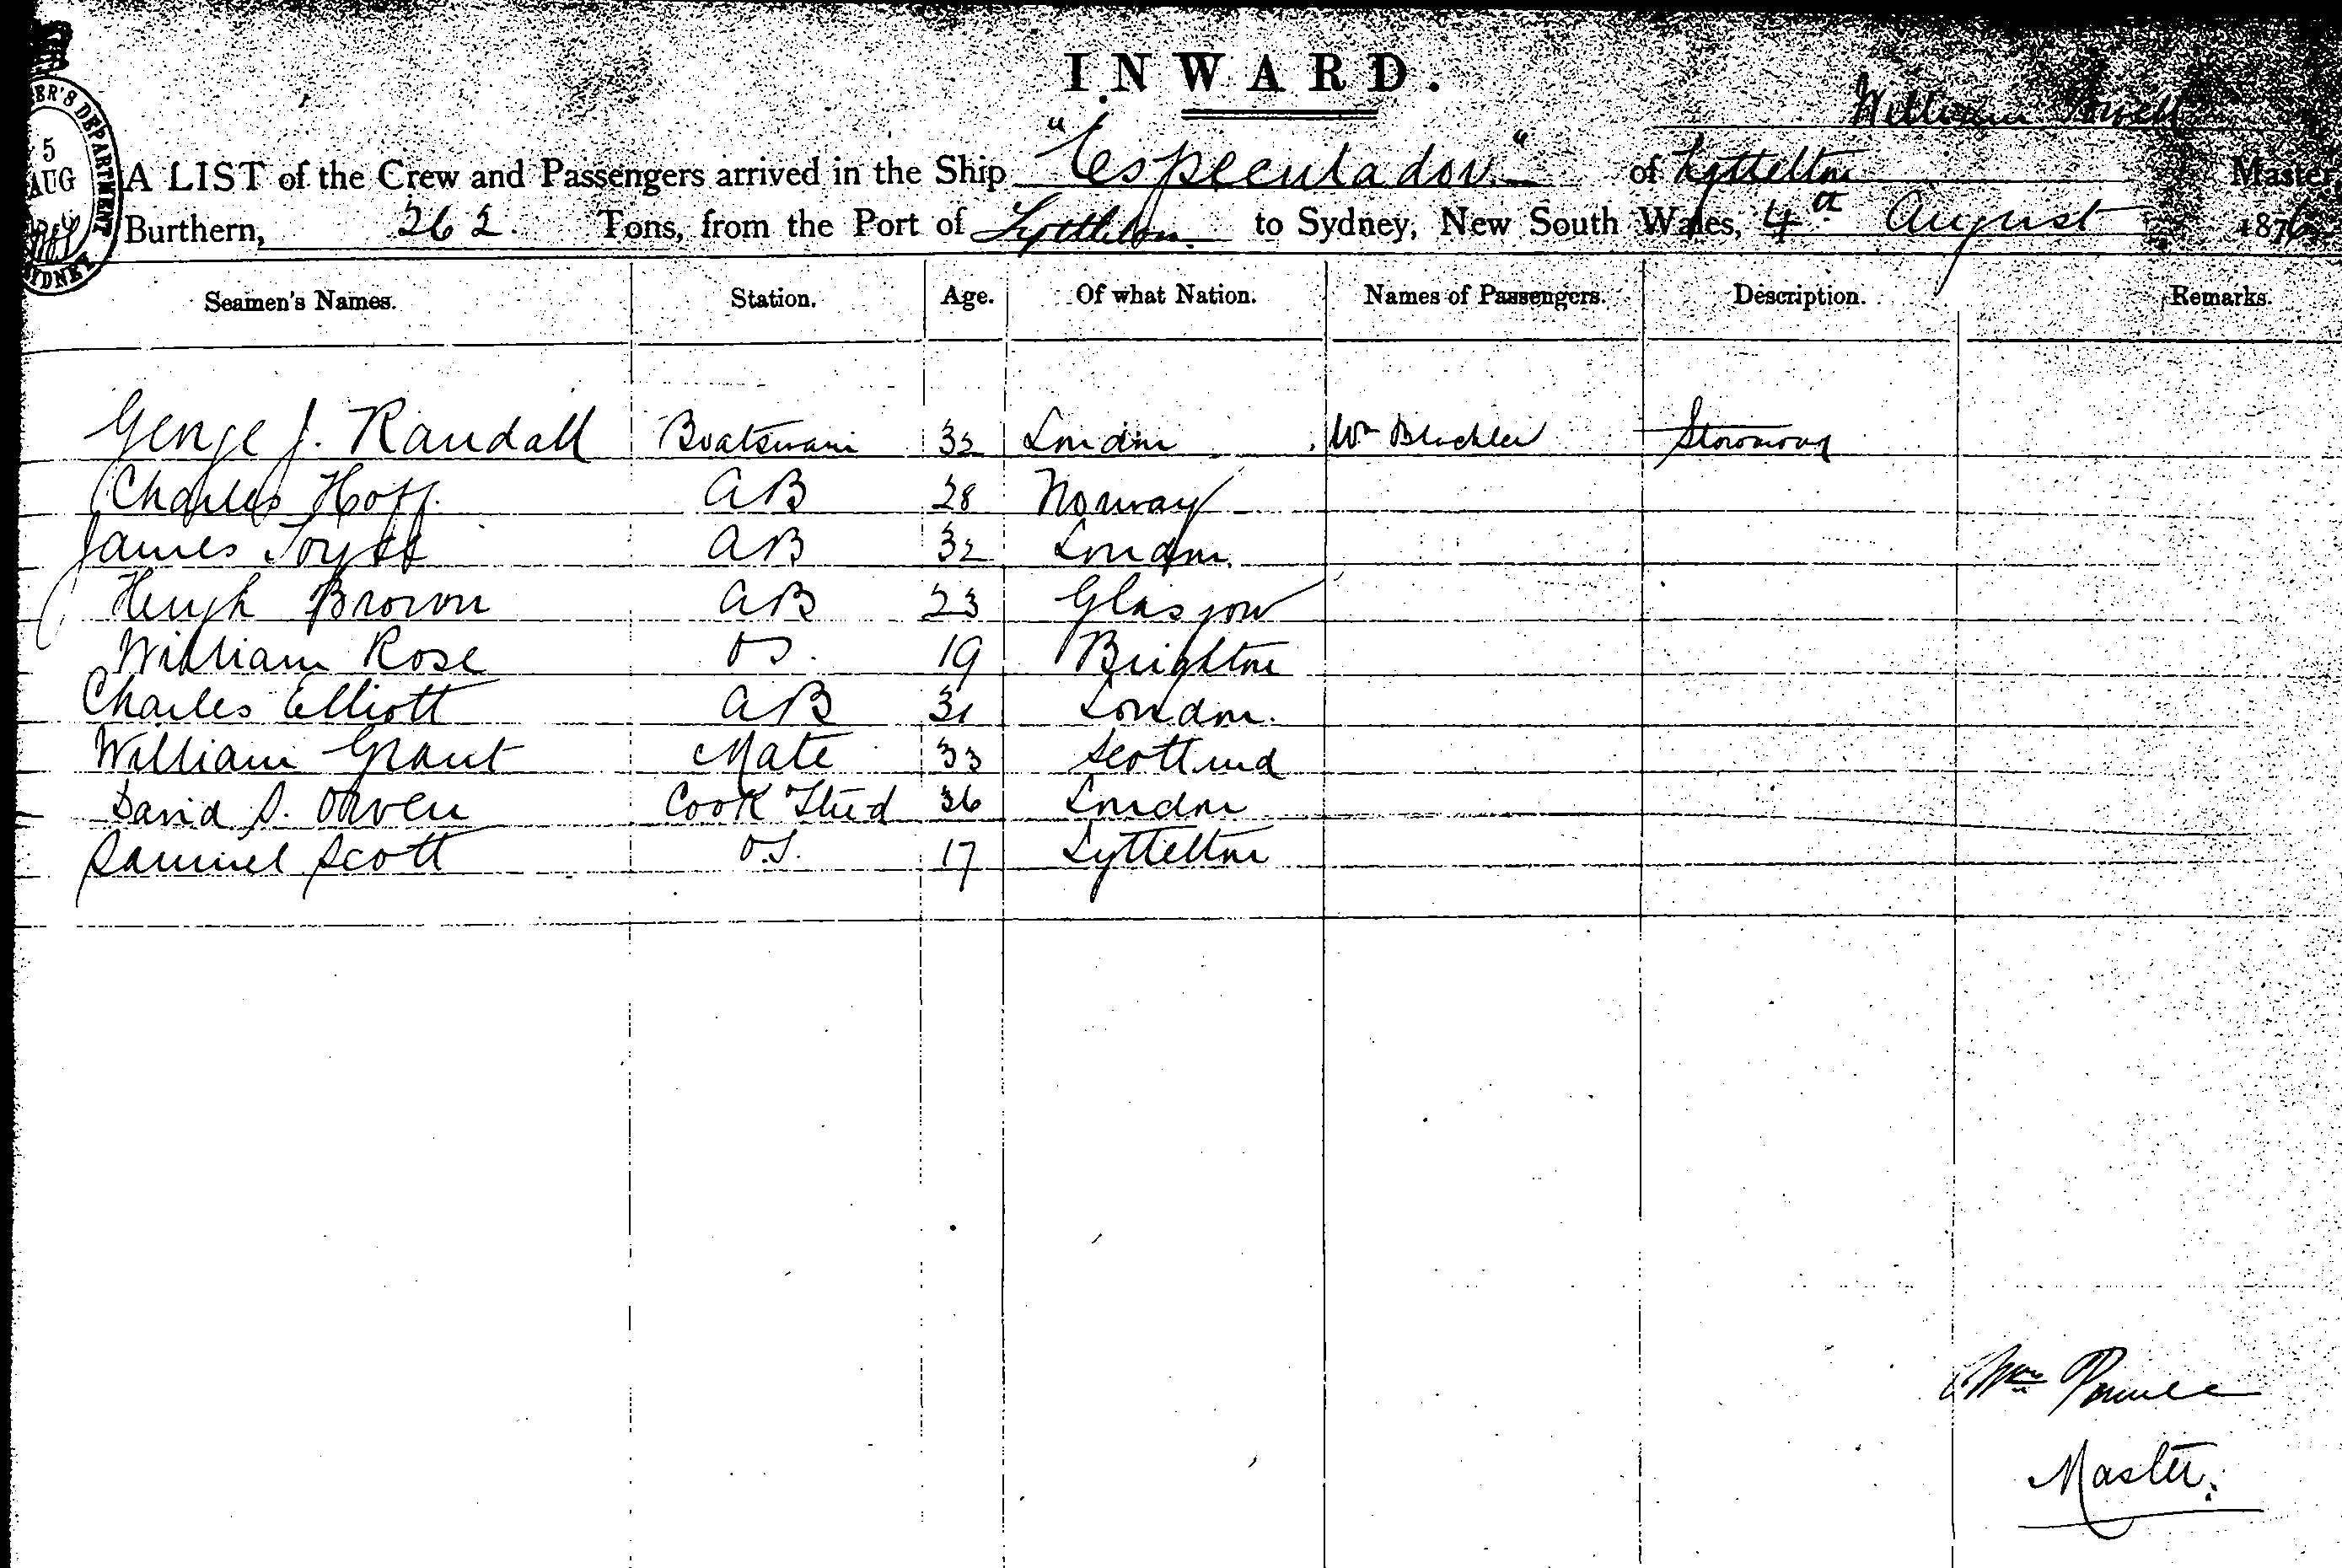 INWARD.
William Powell
A LIST of the Crew and Passengers arrived in the Ship "Especulador" of Lyttelton Master,
Burthern, 262. Tons, from the Port of Lyttelton to Sydney, New South Wales, 4th August 1876
5
AUG
SYDNEY
Seamen's Names. Station. Age. Of what Nation. Names of Passengers. Description. Remarks.
George J. Randall Boatswain 32 London Wm
Charles Hoff. AB 28 Norway
James AB 32 London.
Hugh Brown AB 23 Glasgow
William Rose OS. 19 Brighton
Charles Elliott AB 31 London.
William Grant Mate 33 Scotland
David S. Owen Cook Stud 36 London
Samuel Scott O.S. 17 Lyttelton
Wm Powell
Master.